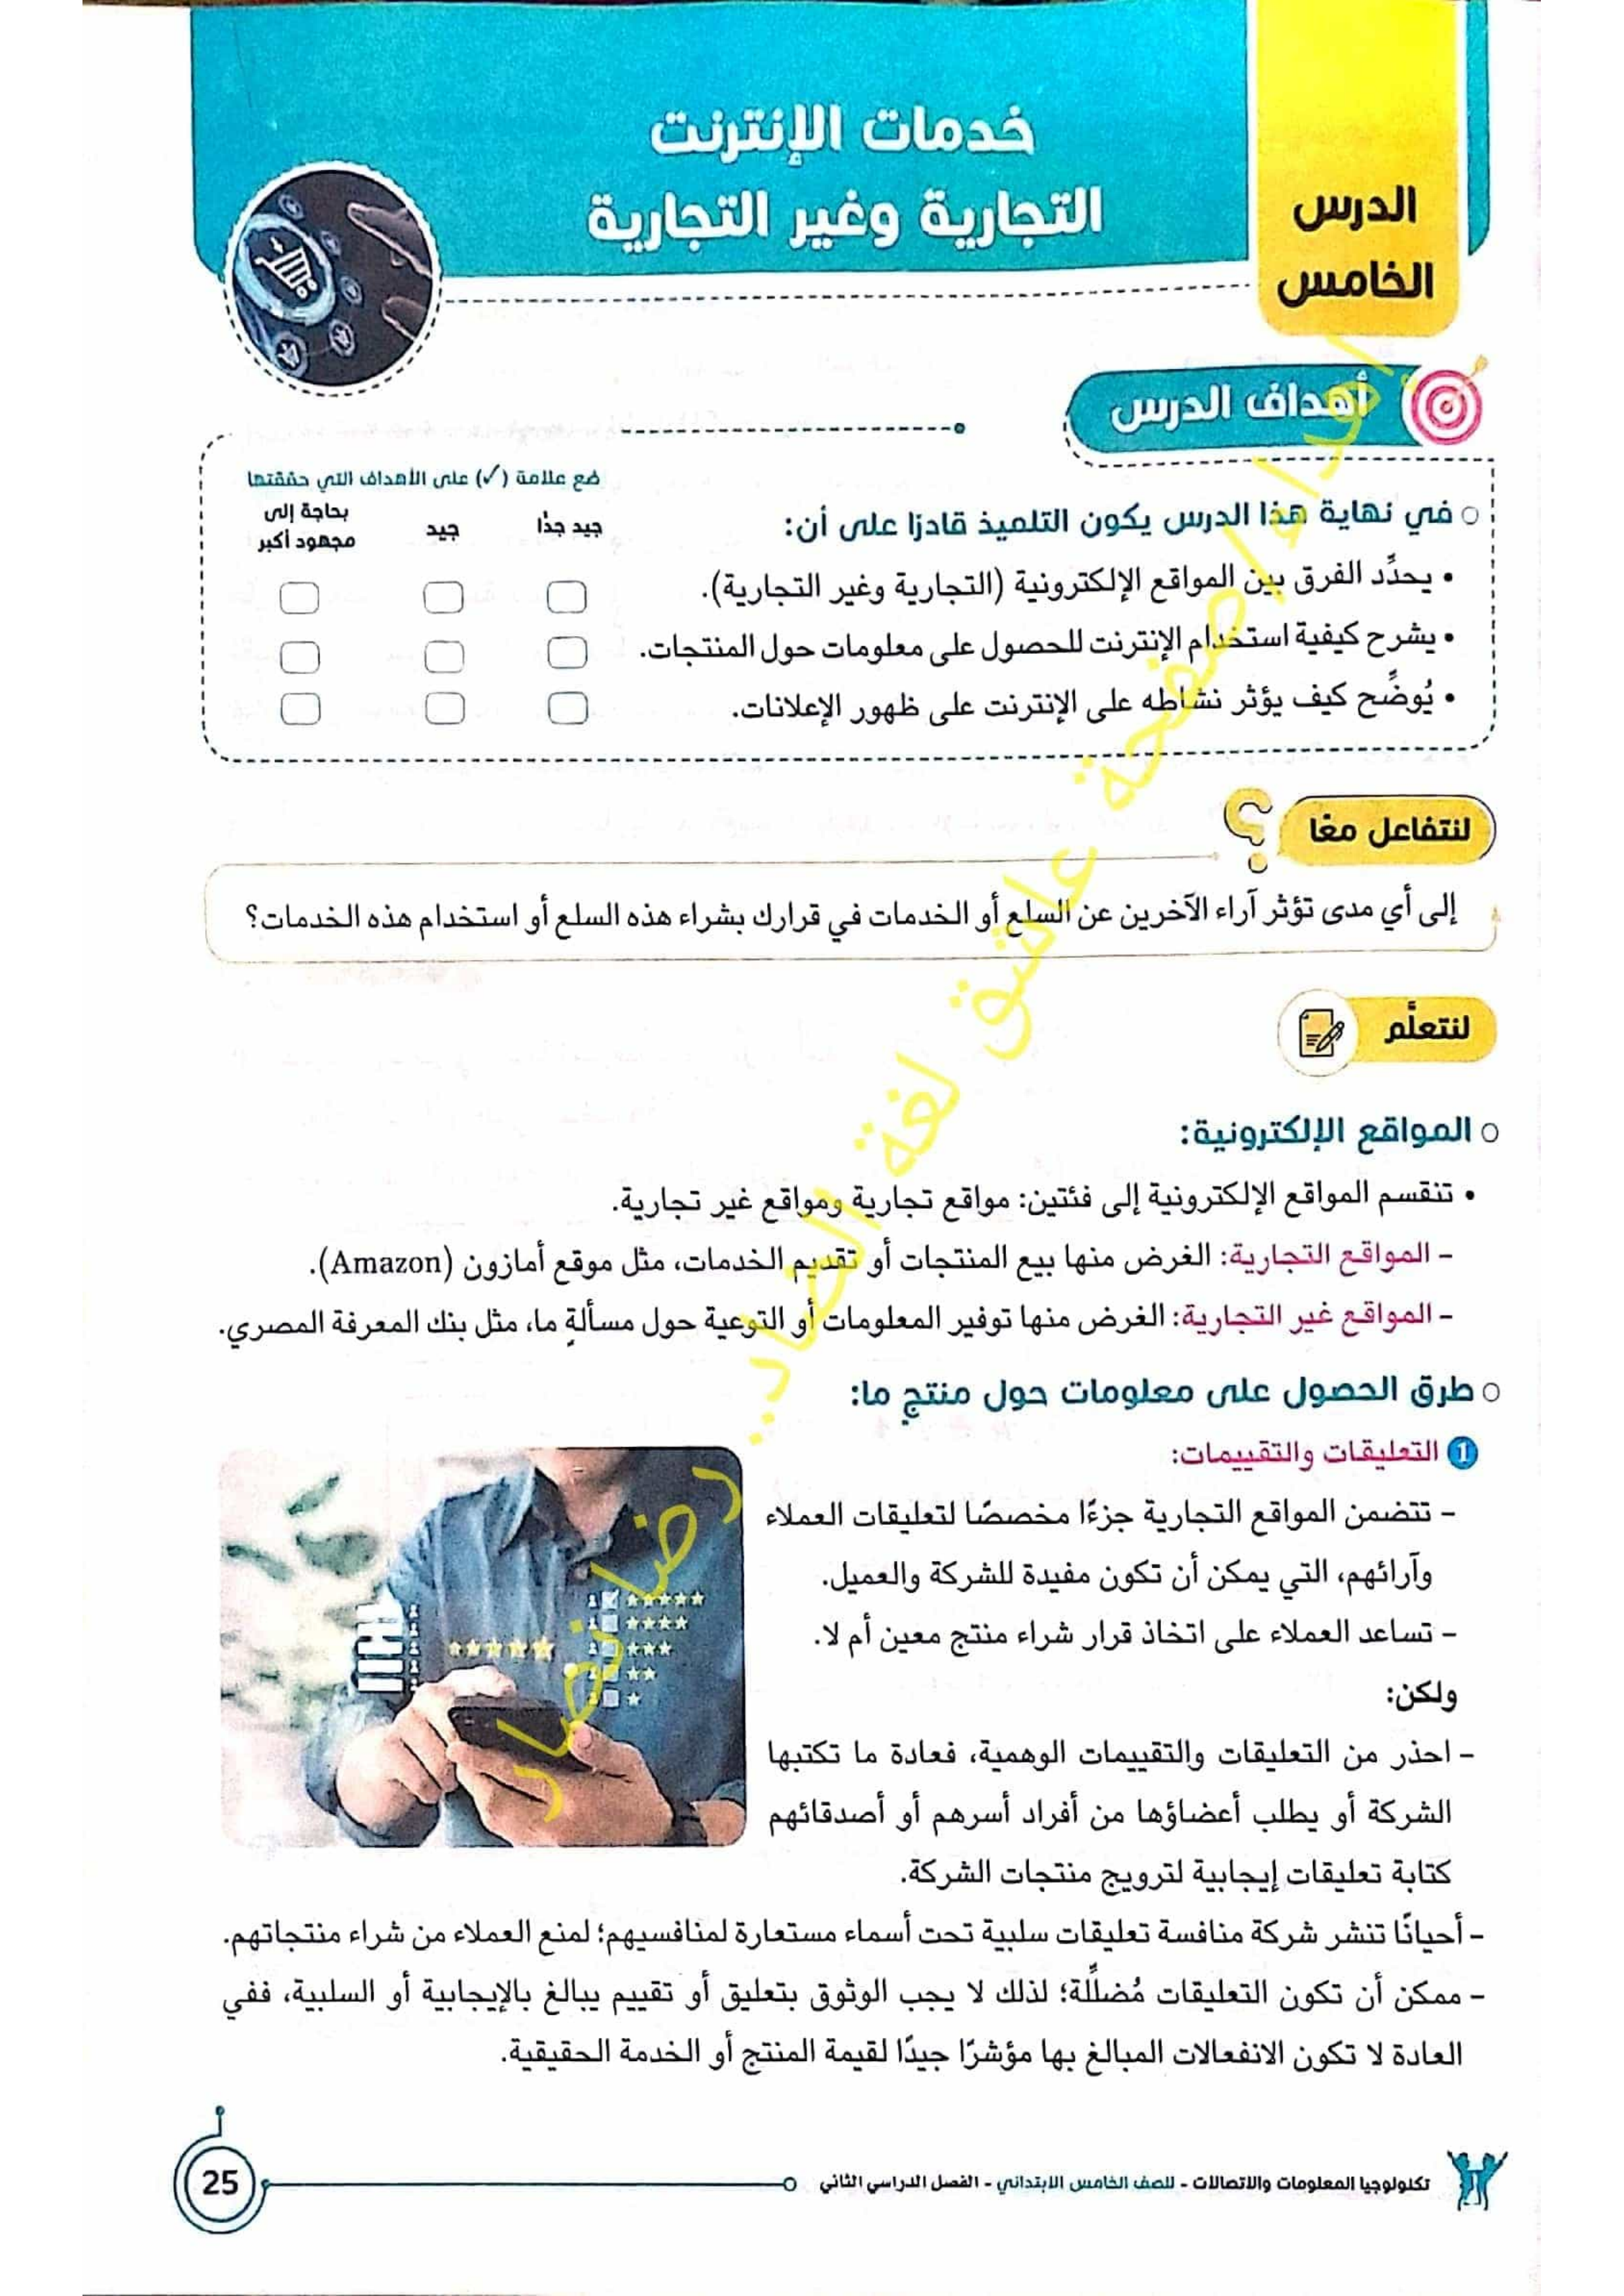 خدمات الإنترنت
التجارية وغير التجارية
الدرس
الخامس
أهداف الدرس
ضع علامة (✓) على الأهداف التي حققتها
في نهاية هذا الدرس يكون التلميذ قادرًا على أن:
جيد جدًا
جيد
بحاجة إلى
مجهود أكبر
• يحدِّد الفرق بين المواقع الإلكترونية (التجارية وغير التجارية).
• يشرح كيفية استخدام الإنترنت للحصول على معلومات حول المنتجات.
• يُوضِّح كيف يؤثر نشاطه على الإنترنت على ظهور الإعلانات.
لنتفاعل معًا
إلى أي مدى تؤثر آراء الآخرين عن السلع أو الخدمات في قرارك بشراء هذه السلع أو استخدام هذه الخدمات؟
لنتعلَّم
المواقع الإلكترونية:
• تنقسم المواقع الإلكترونية إلى فئتين: مواقع تجارية ومواقع غير تجارية.
- المواقع التجارية: الغرض منها بيع المنتجات أو تقديم الخدمات، مثل موقع أمازون (Amazon).
- المواقع غير التجارية: الغرض منها توفير المعلومات أو التوعية حول مسألةٍ ما، مثل بنك المعرفة المصري.
طرق الحصول على معلومات حول منتجٍ ما:
1 التعليقات والتقييمات:
- تتضمن المواقع التجارية جزءًا مخصصًا لتعليقات العملاء
وآرائهم، التي يمكن أن تكون مفيدة للشركة والعميل.
- تساعد العملاء على اتخاذ قرار شراء منتج معين أم لا.
ولكن:
- احذر من التعليقات والتقييمات الوهمية، فعادة ما تكتبها
الشركة أو يطلب أعضاؤها من أفراد أسرهم أو أصدقائهم
كتابة تعليقات إيجابية لترويج منتجات الشركة.
- أحيانًا تنشر شركة منافسة تعليقات سلبية تحت أسماء مستعارة لمنافسيهم؛ لمنع العملاء من شراء منتجاتهم.
- ممكن أن تكون التعليقات مُضلِّلة؛ لذلك لا يجب الوثوق بتعليق أو تقييم يبالغ بالإيجابية أو السلبية، ففي
العادة لا تكون الانفعالات المبالغ بها مؤشرًا جيدًا لقيمة المنتج أو الخدمة الحقيقية.
تكنولوجيا المعلومات والاتصالات - للصف الخامس الابتدائي - الفصل الدراسي الثاني
25
إهداء صفحة عاشق لغة الضاد.. رضا نصار